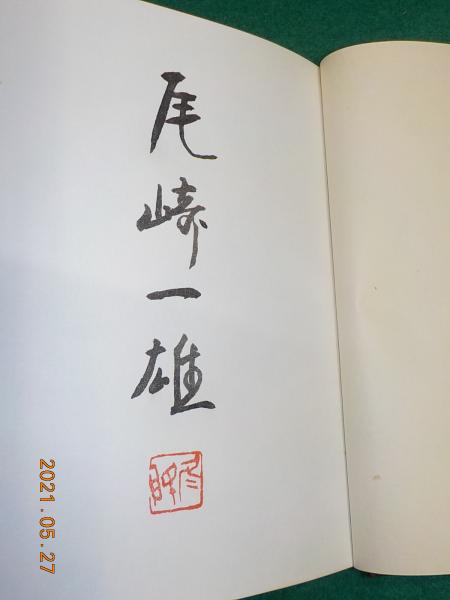 尾崎一雄
2021.05.27